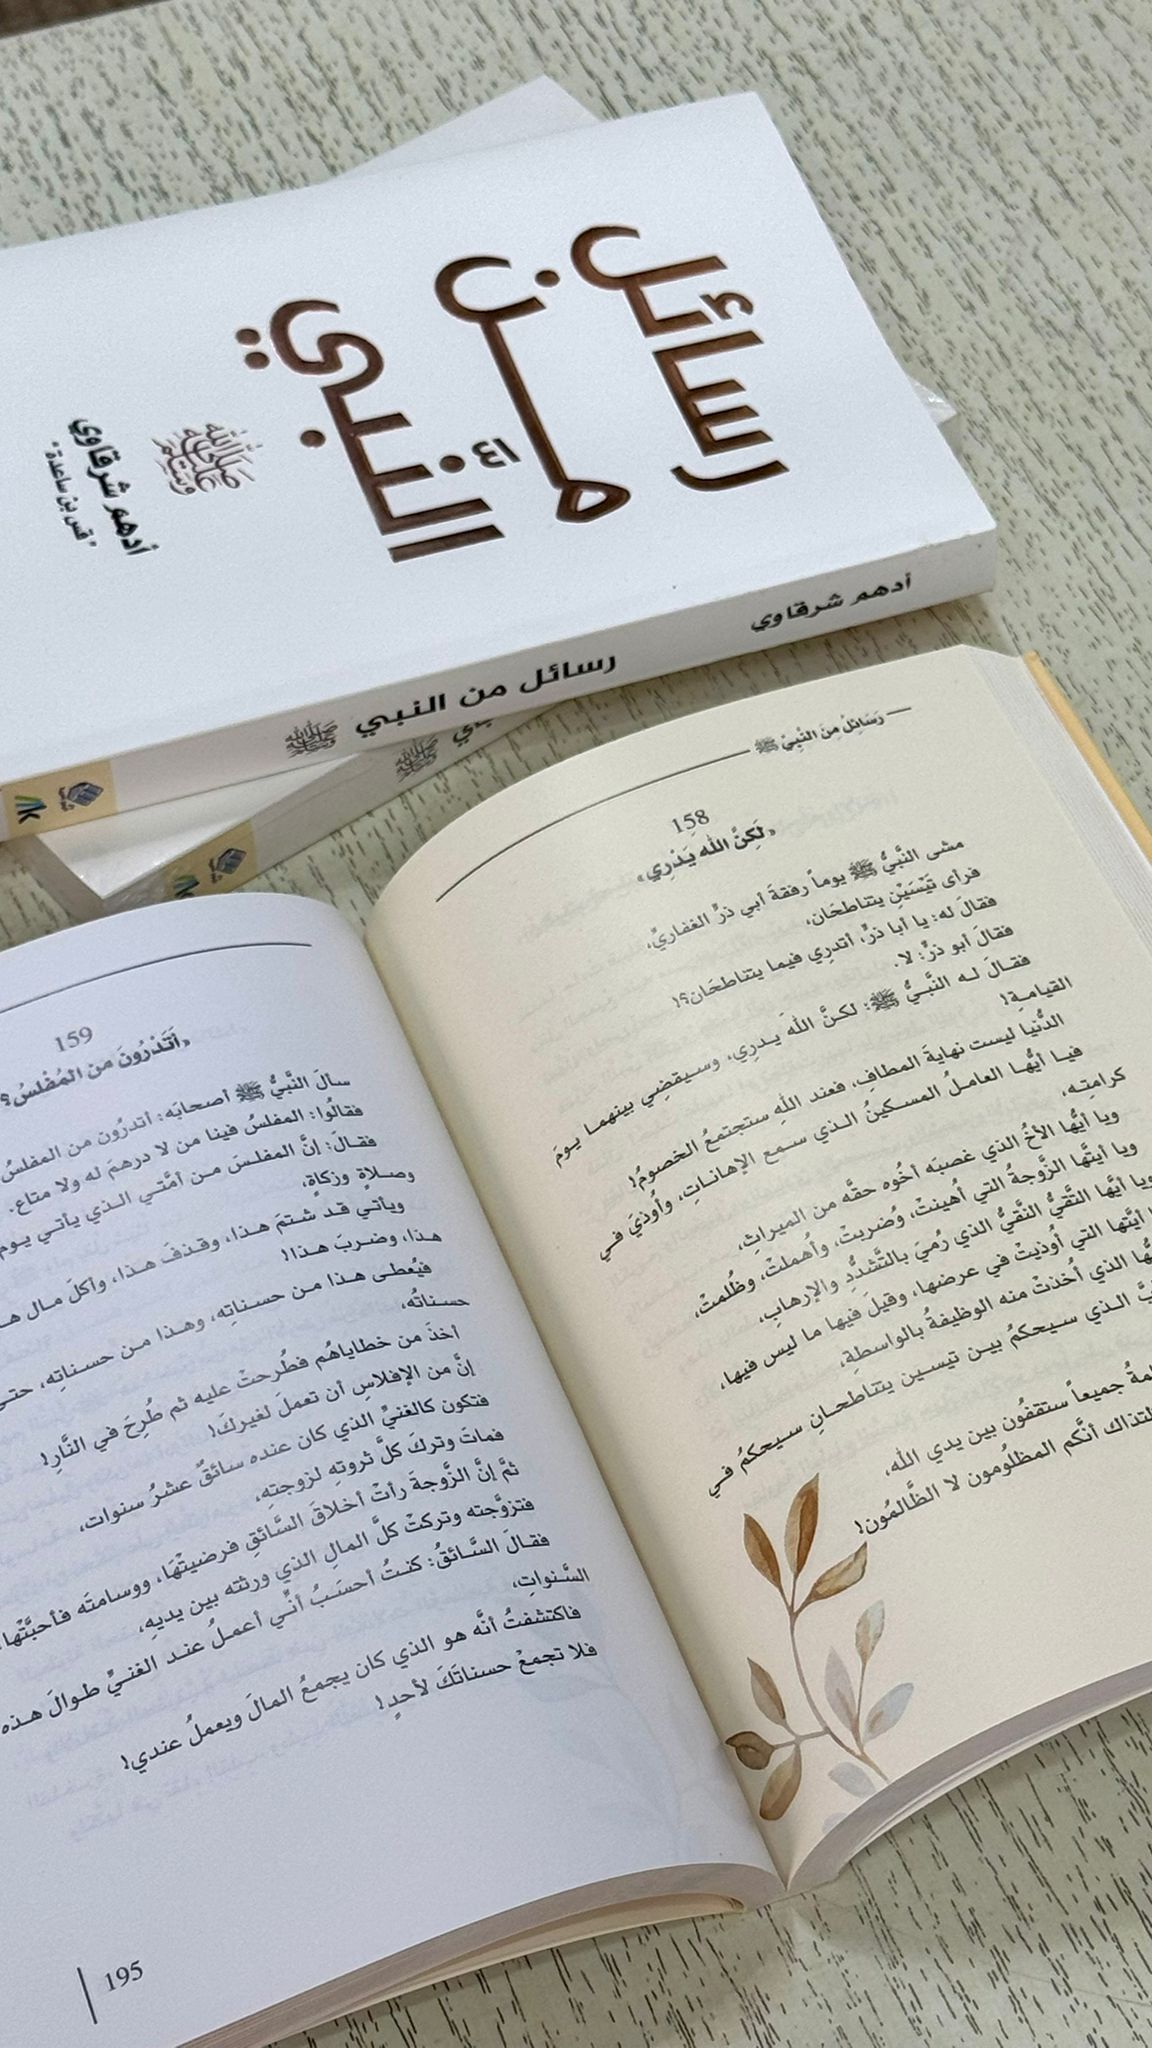 رسائل
من
النبي
صلى الله عليه وسلم
أدهم شرقاوي
"قس بن ساعدة"
أدهم شرقاوي
رسائل من النبي ﷺ
رَسَائِلُ منَ النَّبِيِّ ﷺ
158
«لَكِنَّ الله يَدْرِي»
مشى النَّبيُّ ﷺ يوماً رفقةَ أبي ذرٍّ الغفاريِّ،
فرأى تَيْسَيْنِ يتناطحَان،
فقالَ له: يا أبا ذرٍّ، أتدرِي فيما يتناطحَان؟!
فقالَ أبو ذرٍّ: لا.
فقـالَ لـه النَّبـيُّ ﷺ: لكـنَّ اللهَ يـدرِي، وسـيقضِي بينهمـا يـومَ
القيامـةِ!
الدُّنيا ليست نهايةَ المطافِ، فعند اللهِ ستجتمعُ الخصومُ!
فيـا أيُّهـا العامـلُ المسـكينُ الـذي سـمع الإهانـاتِ، وأُوذيَ فـي
كرامتِـه،
ويا أيُّها الأخُ الذي غصبَه أخُوه حقَّه من الميراثِ،
ويا أيتُها الزَّوجةُ التي أُهينتْ، وضُربتْ، وأُهملتْ، وظُلمتْ،
ويا أيُّها التَّقيُّ النقيُّ الذي رُميَ بالتَّشدُّدِ والإرهابِ،
أيَّتها التي أُوذيتْ في عرضها، وقيلَ فيها ما ليس فيها،
الذي أُخذتْ منه الوظيفةُ بالواسطةِ،
الـذي سـيحكمُ بيـن تيسـين يتناطحـانِ سـيحكمُ فـي
جميعاً ستقفُون بين يدي الله،
أنَّكم المظلُومون لا الظَّالمُون!
159
«أَتَدْرُونَ من المُفْلسُ؟
سألَ النَّبيُّ ﷺ أصحابَه: أتدرُون من المفلسُ
فقالُوا: المفلسُ فينا من لا درهمَ له ولا متاع.
فقـالَ: إنَّ المفلـسَ مـن أمَّتـي الـذي يأتـي يـوم
وصـلاةٍ وزكاةٍ،
ويأتـي قـد شـتمَ هـذا، وقـذفَ هـذا، وأكلَ مـال
هـذا، وضـربَ هـذا!
فيُعطـى هـذا مـن حسـناتِه، وهـذا مـن حسـناتِه،
حسـناتُه،
أخذَ من خطاياهُم فطُرحتْ عليه ثم طُرِحَ في النَّارِ!
إنَّ من الإفلاسِ أن تعملَ لغيركَ!
فتكون كالغنيِّ الذي كان عنده سائقٌ عشرُ سنوات،
فماتَ وتركَ كلَّ ثروتهِ لزوجتهِ،
ثمَّ إنَّ الزَّوجةَ رأتْ أخلاقَ السَّائقِ فرضيتْهَا، ووسامتَه فأحبَّتْها
فتزوَّجته وتركتْ كلَّ المالِ الذي ورثته بين يديهِ،
فقـالَ السَّـائقُ: كنـتُ أحسَـبُ أنِّـي أعمـلُ عنـد الغنـيِّ طـوالَ هـذه
السَّـنواتِ،
فاكتشفتُ أنَّه هو الذي كان يجمعُ المالَ ويعملُ عندي!
فلا تجمعْ حسناتَكَ لأحدٍ!
195